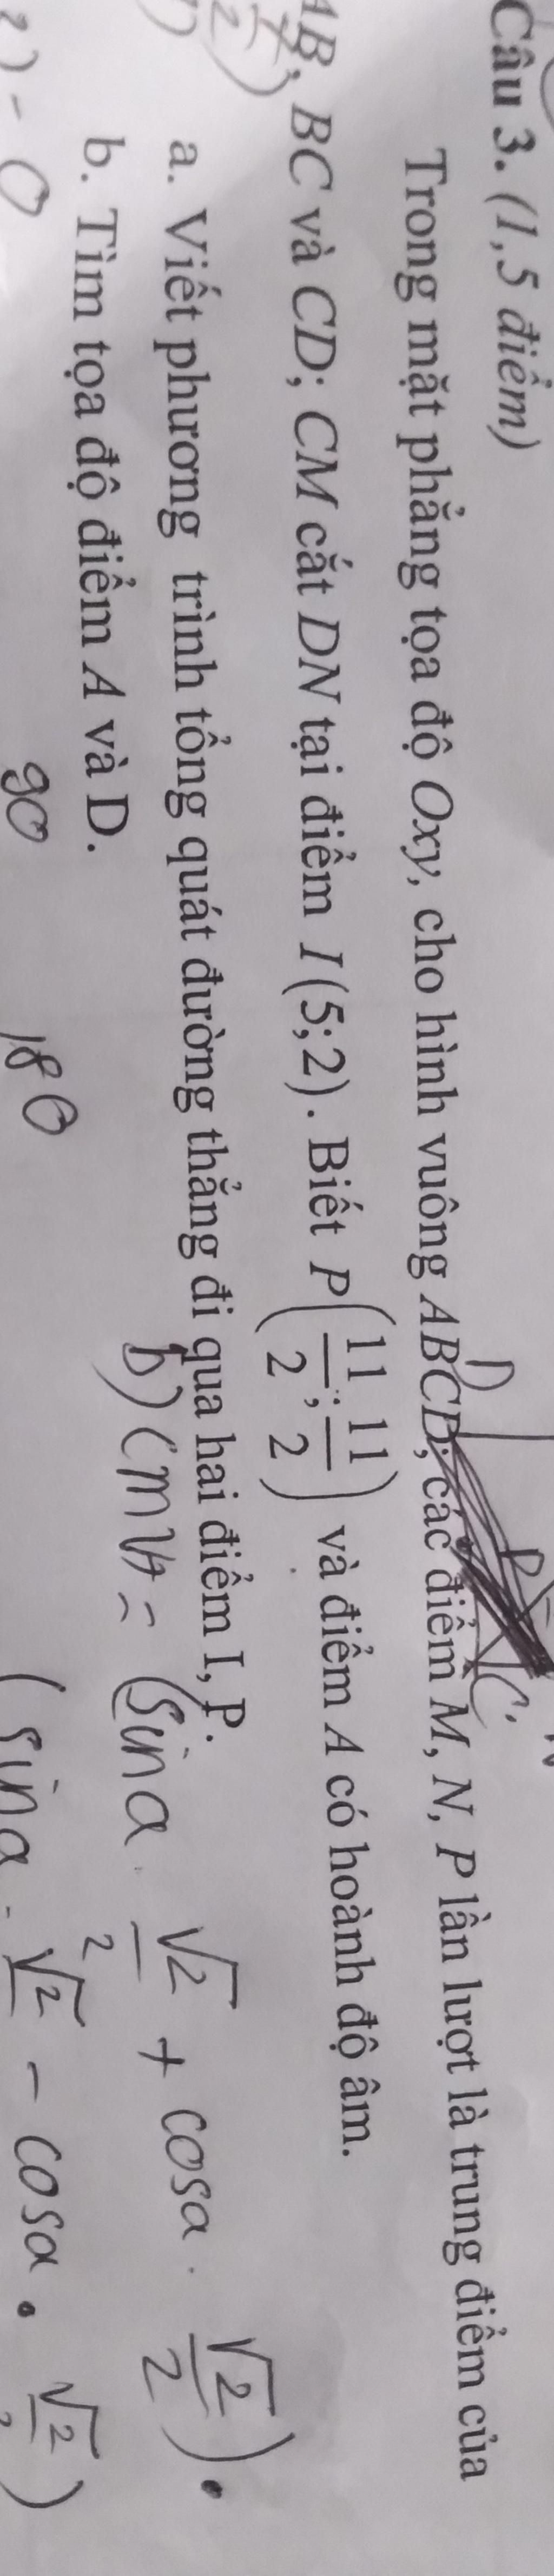 Câu 3. (1,5 điểm)
Trong mặt phẳng tọa độ Oxy, cho hình vuông ABCD; các điểm M, N, P lần lượt là trung điểm của
AB, BC và CD; CM cắt DN tại điểm I(5;2). Biết P(11/2; 11/2) và điểm A có hoành độ âm.
a. Viết phương trình tổng quát đường thẳng đi qua hai điểm I, P.
b. Tìm tọa độ điểm A và D.
D
P
C
N
b) CMVT = (sin a . √2/2 + cosa . √2/2).
(sin a . √2/2 - cosa . √2/2)
90
180